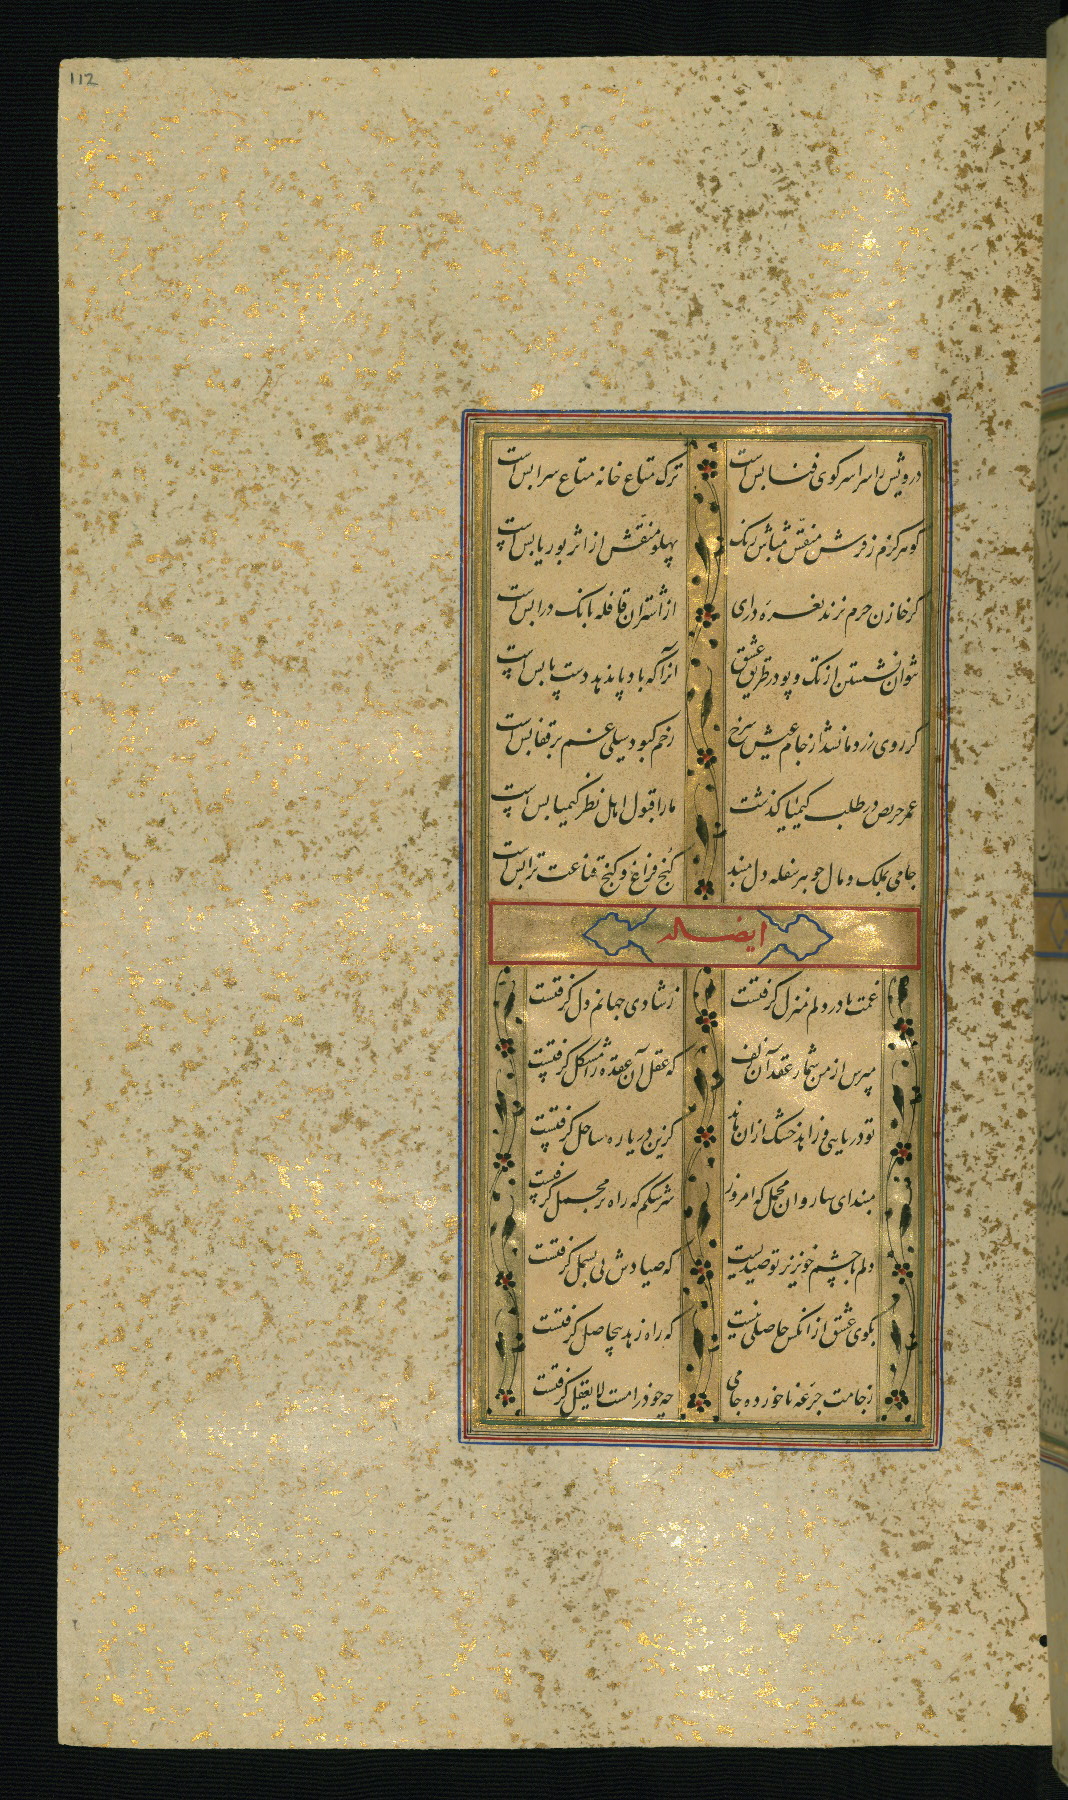 112
درویش را سرا سر کوی فنا بس است ترک متاع خانه متاع سرا بس است
کو سر کزم ز فرش منقش مباش رنگ پهلو منقش از اثر بوریا بس است
گر خازن حرم نزند نعره داری از اشتران قافله بانگ درا بس است
نتوان نشستن از تک و پو در طریق عشق آنرا که باد پا ندهد دست پا بس است
گر روی زرد ما نشد از جام عیش سرخ زخم کبود سیلی غم بر قفا بس است
عمر حریص در طلب کیمیا گذشت ما را قبول اهل نظر کیمیا بس است
جامی بملک و مال چو هر سفله دل مبند کنج فراغ و گنج قناعت ترا بس است
ایضا له
غمت تا در دلم منزل گرفتست ز شادی جهانم دل گرفتست
مپرس از من شمار عقد آن زلف که عقل آن عقده را مشکل گرفتست
تو دریایی و زاهد خشک ازان ماند کزین دریا ره ساحل گرفتست
مبند ای ساروان محمل که امروز سرشکم که راه بر محمل گرفتست
دلم با چشم خونریز تو صیدیست که صیادش پی بسمل گرفتست
بکوی عشق از آنکس حاصلی نیست که راه زهد بیحاصل گرفتست
ز جامت جرعه ناخورده جامی چه خود را مست لا یعقل گرفتست